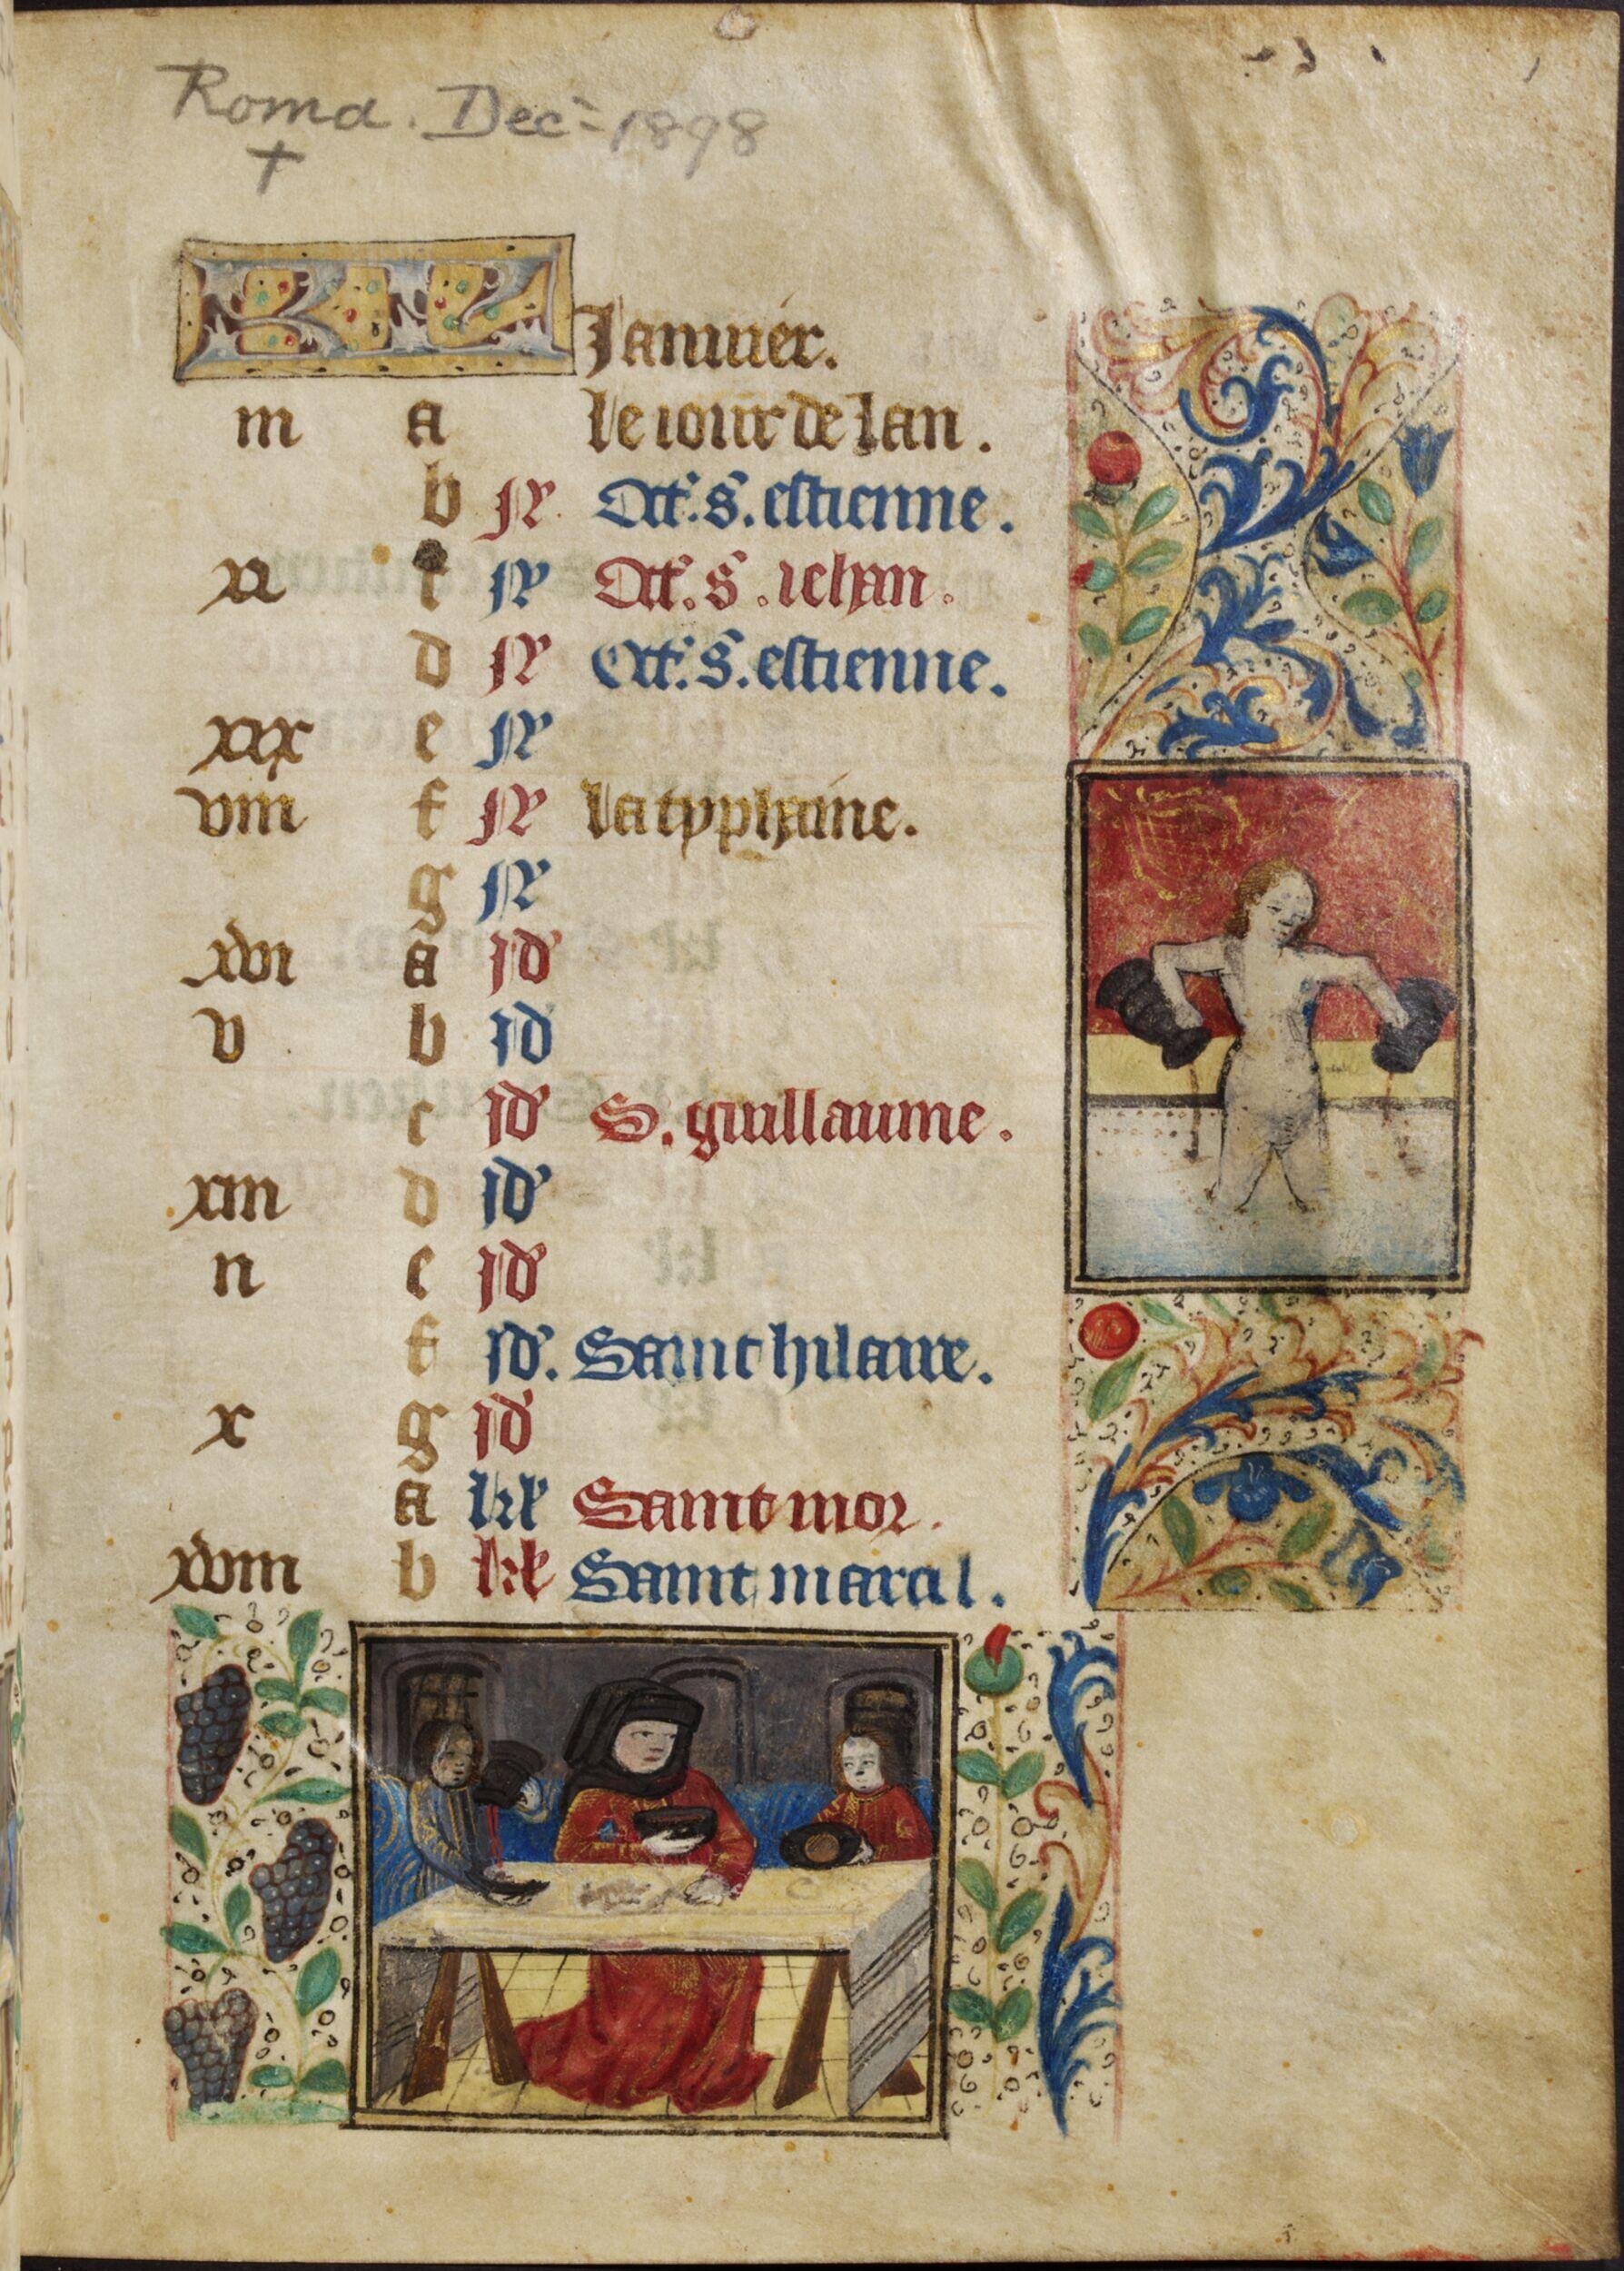 Roma. Dec- 1898
KL Januier.
iii a le iour de lan.
b N Oct. s. estienne.
xi c N Oct. s. iehan.
d N Oct. s. estienne.
xix e N
viii f N la typhaine.
g N
xvi a id
v b id
c id S. guillaume.
xiii d id
ii e id
f id. Saint hilaire.
x g id
a kl Saint mor.
xviii b kl Saint marcal.